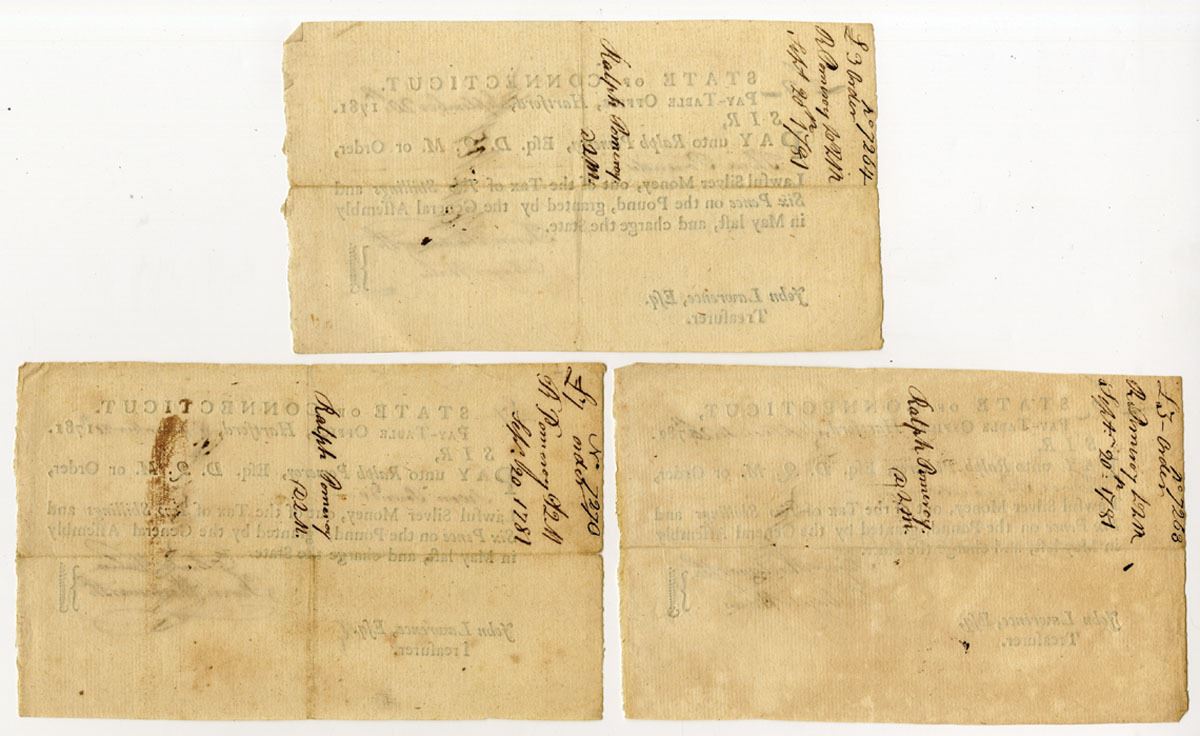 £3 Order
No 7264
R Pomeroy DQM
Sept 20 1781
Ralph Pomeroy
DQM
STATE OF CONNECTICUT.
PAY-TABLE OFFICE, Hartford, 1781.
SIR,
PAY unto Ralph Pomeroy, Esq. D. Q. M. or Order,
Lawful Silver Money, out of the Tax of Two Shillings and
Six Pence on the Pound, granted by the General Assembly
in May laſt, and charge the State.
John Lawrence, Eſq.
Treaſurer.
£7
Order
No 7270
R Pomeroy DQM
Sept. 20 1781
Ralph Pomeroy
DQM.
STATE OF CONNECTICUT.
PAY-TABLE OFFICE, Hartford, 1781.
SIR,
PAY unto Ralph Pomeroy, Esq. D. Q. M. or Order,
Lawful Silver Money, out of the Tax of Shillings and
Six Pence on the Pound, granted by the General Assembly
in May laſt, and charge the State.
John Lawrence, Eſq.
Treaſurer.
£5- Order
No 7268
R Pomeroy DQM
Sept 20: 1781
Ralph Pomeroy.
DQM.
STATE OF CONNECTICUT.
PAY-TABLE OFFICE, Hartford, 1781.
SIR,
PAY unto Ralph Esq. D. Q. M. or Order,
Lawful Silver Money, out of the Tax of Shillings and
Six Pence on the Pound, granted by the General Assembly
in May laſt, and charge the State.
John Lawrence, Eſq.
Treaſurer.